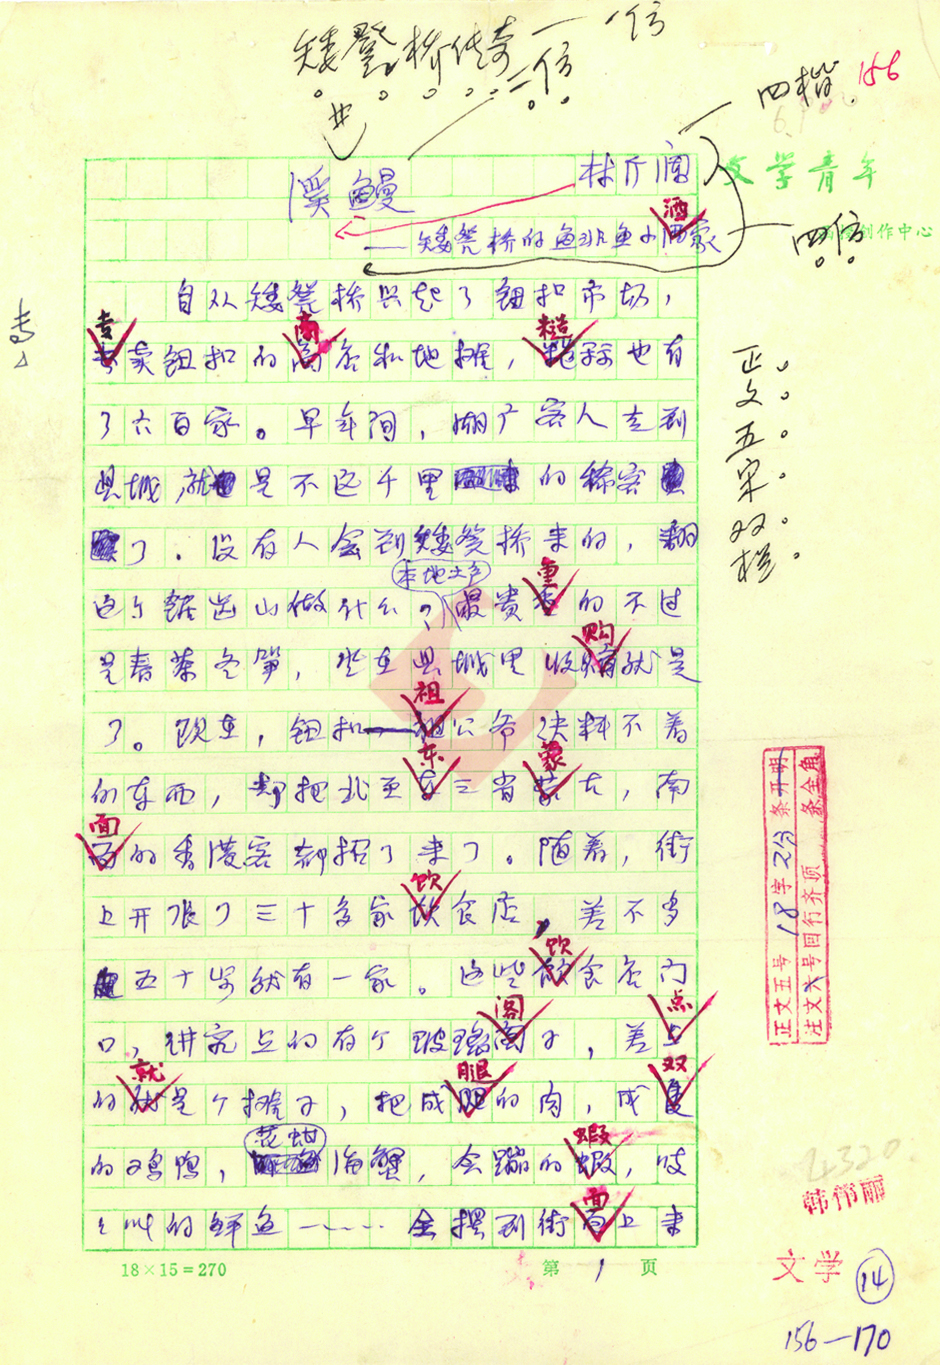 矮凳桥传奇 一信
二信
四楷
156
文学青年
创作中心
溪鳗
林斤澜
四仿
——矮凳桥的鱼非鱼小酒家
自从矮凳桥兴起了钮扣市场,
专卖钮扣的商店和地摊,糙算也有
了六百家。早年间,湖广客人走到
县城,就是不远千里的稀客
了。没有人会到矮凳桥来的,翻
这个锯齿山做什么?本地土产最贵重的不过
是春茶冬笋,坐在县城里收购就是
了。现在,钮扣——祖公爷决料不着
的东西,却把北至东三省蒙古,南
面的香港客都招了来了。随着,街
上开张了三十多家饮食店,差不多
五十步就有一家。这些饮食店门
口,讲究点的有个玻璃阁子,差点
的就是个摊子,把成腿的肉,成双
的鸡鸭,花蚶海蟹,会蹦的虾,吱
吱叫的鲜鱼……全摆到街面上来
18×15=270
第 1 页
专
正文五宋双栏
正文五号18字2分条开明
注文六号回行齐顶 条全角
韩伟丽
文学 14
156—170